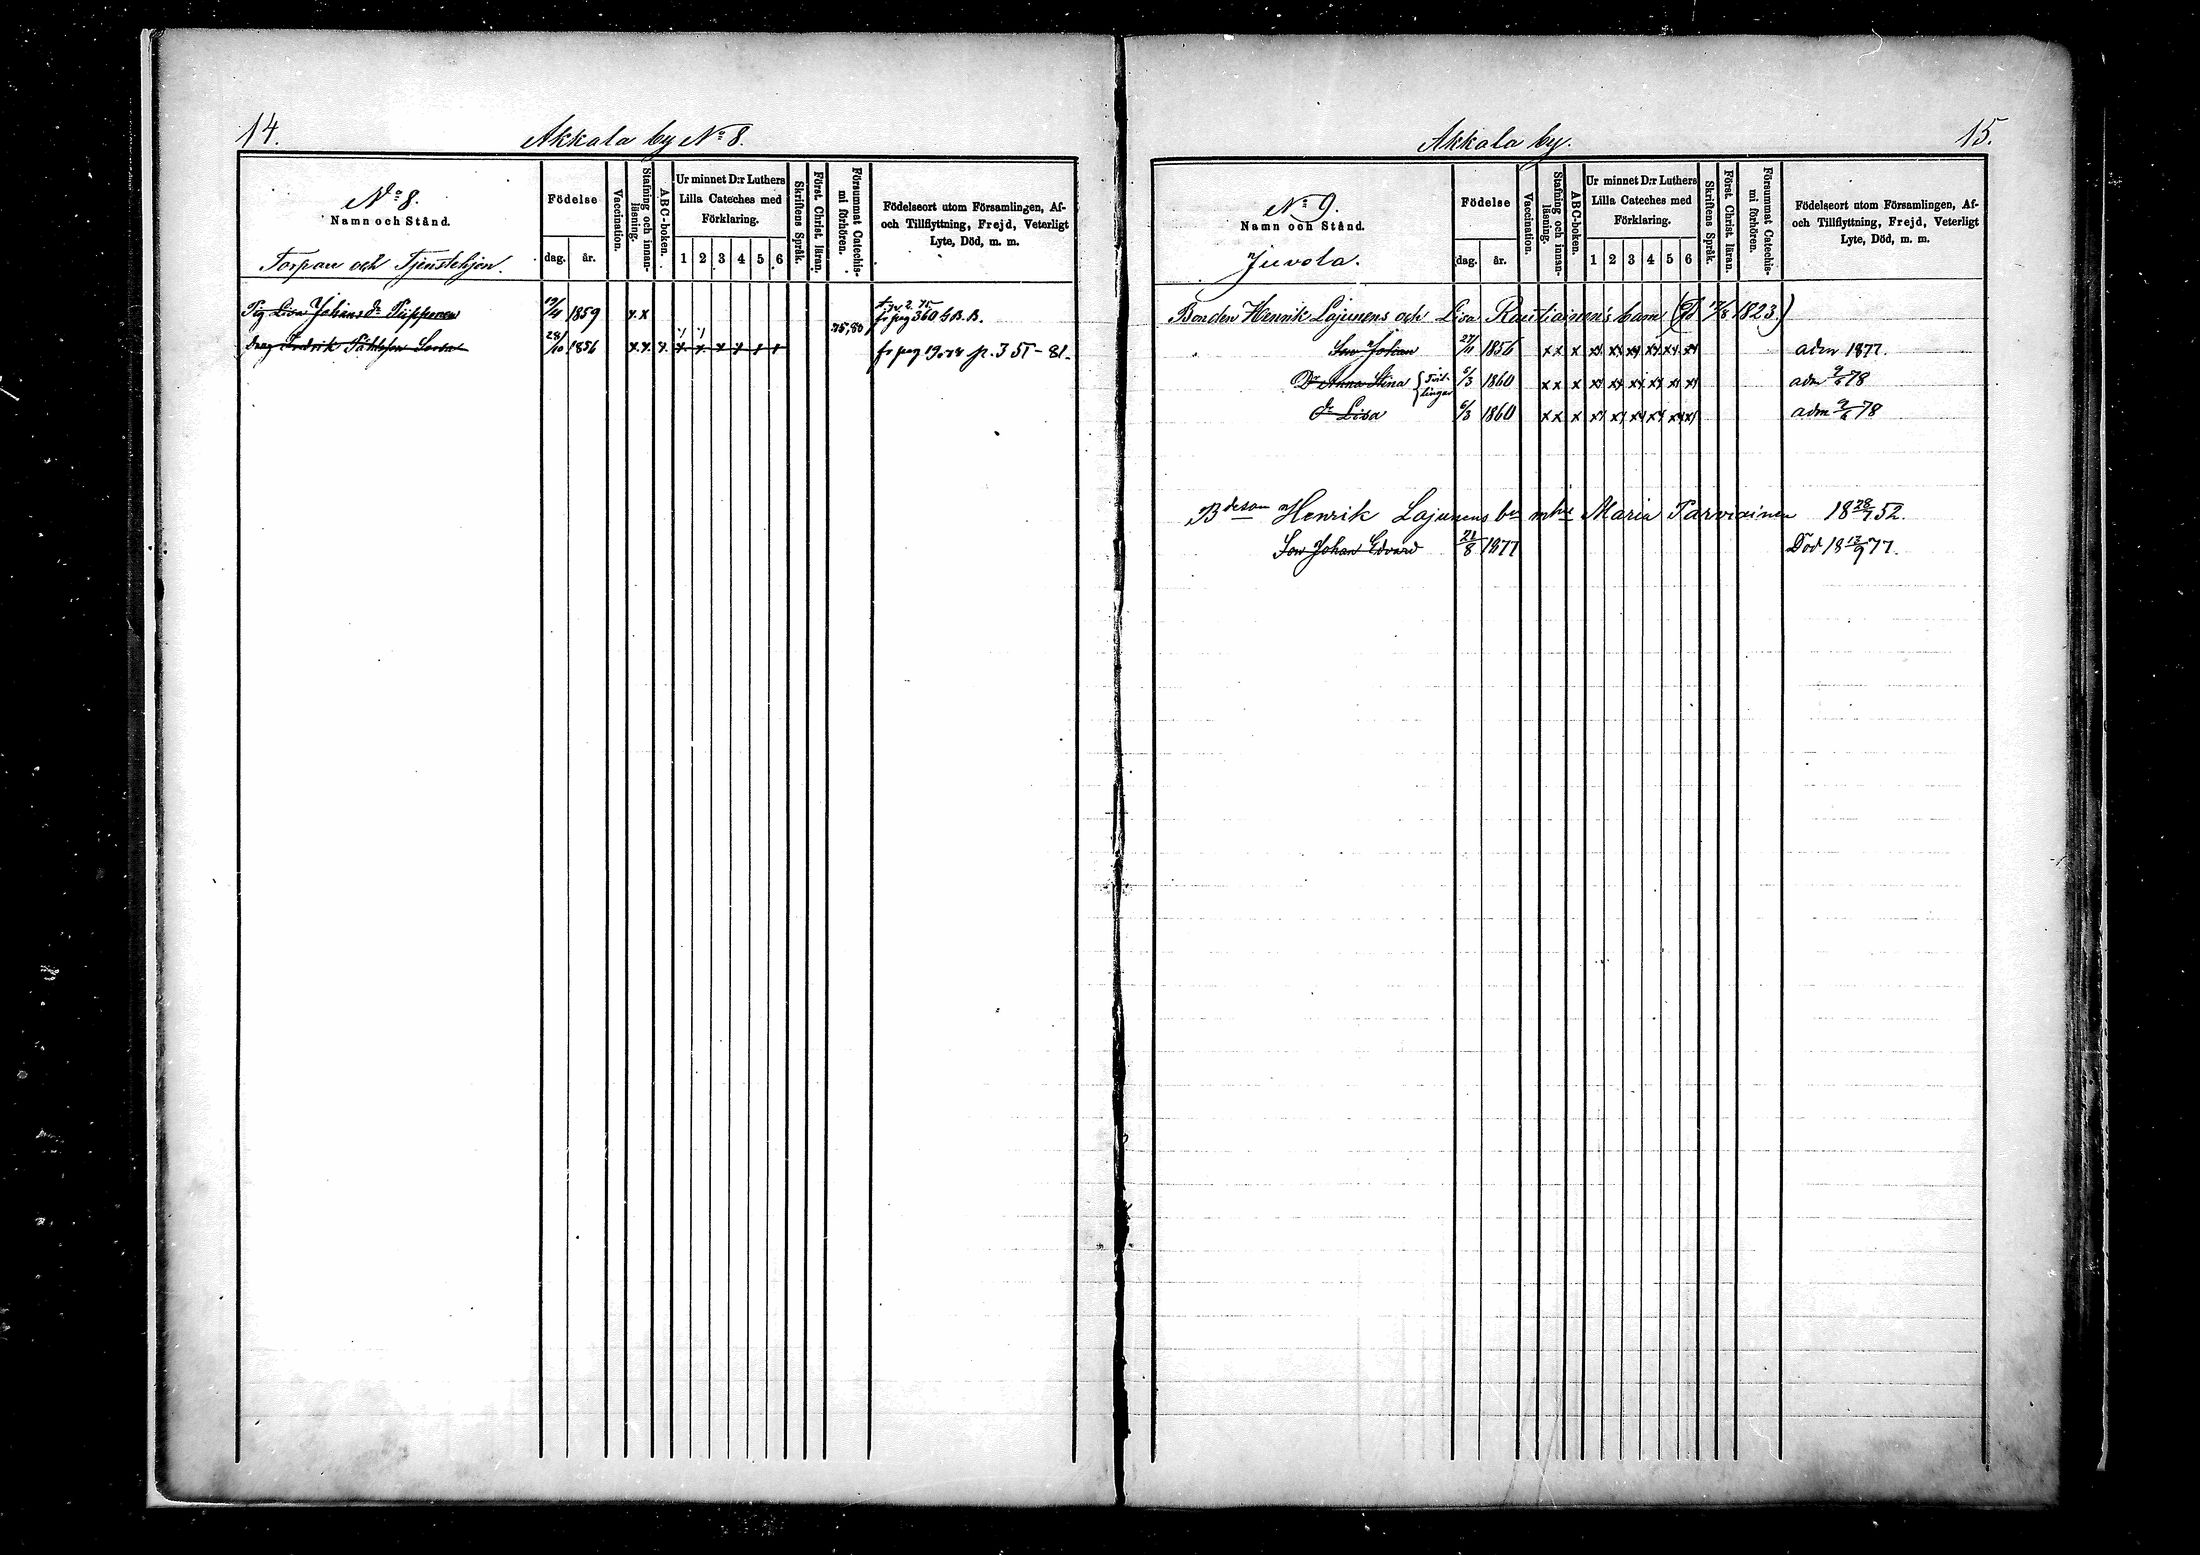 14.
Akkala by No 8.
No 8.
Namn och Stånd.
Torpare och Tjenstehjon.
Födelse
dag.
år.
Vaccination.
Stafning och innanläsning.
ABC-boken.
Ur minnet D:r Luthers
Lilla Cateches med
Förklaring.
1 2 3 4 5 6
Skriftens Språk.
Först. Christ. läran.
Försummat Catechismi förhören.
Födelseort utom Församlingen, Af-
och Tillflyttning, Frejd, Veterligt
Lyte, Död, m. m.
Pig Lisa Johans dr 19/4 1859 x x 75,80 fr pag 360 G.B.
Dräng Fredrik Påhlsson 28/10 1856 x x x x x x x fr pag p. 351 - 81.
Akkala by.
15.
No 9.
Namn och Stånd.
Juvola.
Födelse
dag.
år.
Vaccination.
Stafning och innanläsning.
ABC-boken.
Ur minnet D:r Luthers
Lilla Cateches med
Förklaring.
1 2 3 4 5 6
Skriftens Språk.
Först. Christ. läran.
Försummat Catechismi förhören.
Födelseort utom Församlingen, Af-
och Tillflyttning, Frejd, Veterligt
Lyte, Död, m. m.
Bonden Henrik Lajunens och Lisa Rautiainen's barn 17/8 1823.)
Son Johan 27/11 1856 x x x x x x x x x adm 1877.
Dr Anna Stina { Tvil-
lingar 6/3 1860 x x x x x x x x x adm 9/6 78
dr Lisa 6/3 1860 x x x x x x x x x adm 9/6 78
Bdeson Henrik Lajunens Maria Parviainen 18 28/7 52.
Son Johan Edvard 21/8 1877 Död 18 13/9 77.